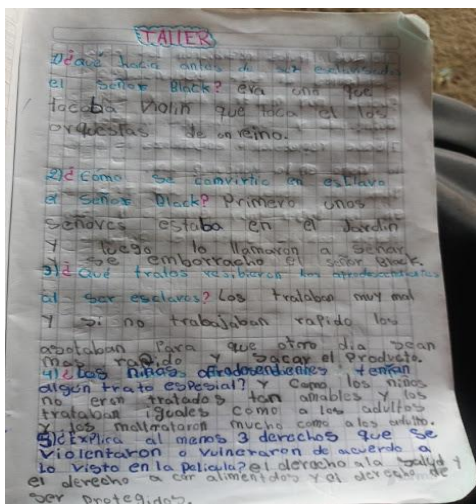 TALLER
1) ¿qué hacia antes de ser esclavisado
el señor Black? era uno que
tocaba violin que toca el los
orquestas de un reino.
2) ¿cómo se comvirtio en esclavo
el señor Black? Primero unos
señores estaba en el Jardin
y luego lo llamaron a señar
y se emborracho el señor Black.
3) ¿Qué tratos resibieron los afrodescendientes
al ser esclavos? Los tralaban muy mal
y si no trabajaban rapido los
asotaban Para que otro dia sean
mas rapido y sacar el Producto.
4) ¿Los niños afrodesendientes tenían
algún trato espesial? y Como los niños
no eran tratados tan amables y los
trataban iguales como a los adultos
y los maltrataron mucho como a los adulto.
5) ¿Explica al menos 3 derechos que se
violentaron o vulneraron de acuerdo a
lo visto en la pelicula? el derecho a la salud y
el derecho a car alimentdos y el derecho de
ser protegidos.